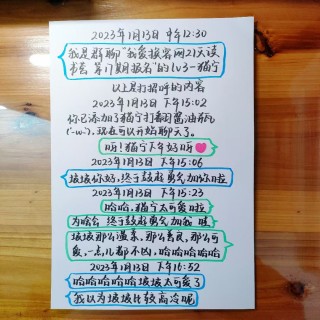 2023年1月13日 中午12:30
我是群聊"我爱拔客网21天读
书营 第17期报名"的lv3-猫宁
以上是打招呼的内容
2023年1月13日 下午15:02
你已添加了猫宁打翻酱油瓶
('-ω-), 现在可以开始聊天了。
呀!猫宁下午好呀
2023年1月13日 下午15:06
坡坡你好,终于鼓起勇气加你啦
2023年1月13日 下午15:23
哈哈,猫宁太可爱啦
为啥会 终于鼓起勇气加我 哇
坡坡那么温柔,那么亲民,那么可
爱,一点儿都不凶,哈哈哈哈哈哈
2023年1月13日 下午16:52
哈哈哈哈哈哈坡坡太可爱了
我以为坡坡比较高冷呢